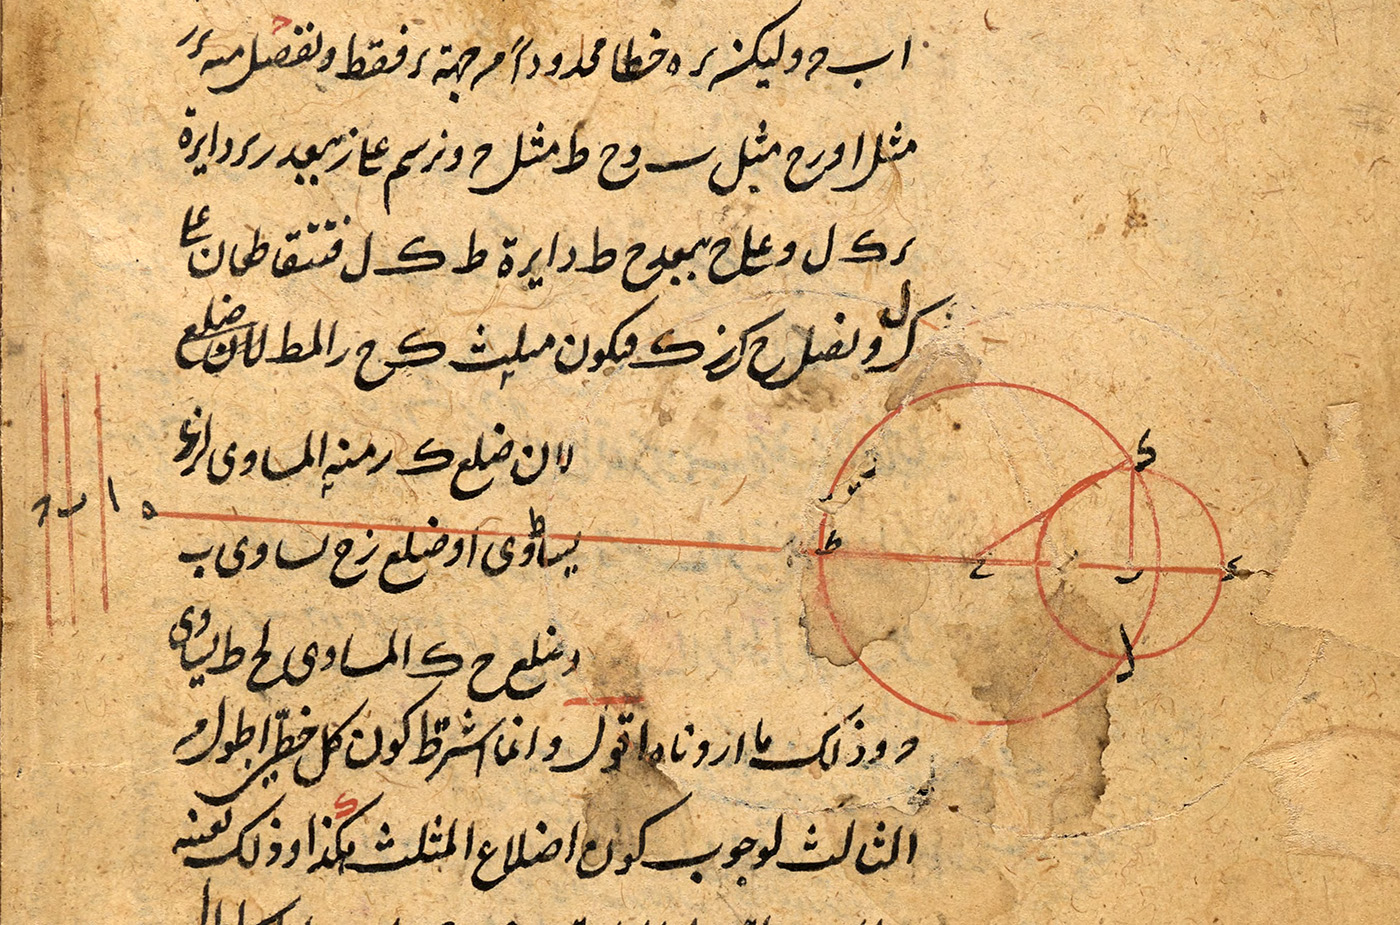 اب ح وليكن ره خطا محدودا من جهة ر فقط ونفصل منه رر
مثل ا ورح مثل ب وح ط مثل ح ونرسم على ز ببعد رر دايرة
رك ل وعلى ح ببعد ح ط دايرة ط ك ل فتتقاطعان على
ك ل ونصل ح ك ز ك فيكون مثلث ك ح ر المط لان ضلع
لان ضلع ك ر منه المساوى لرء
يساوى ا وضلع زح يساوى ب
وضلع ح ك المساوى لح ط يساوى
ح وذلك ما اردناه اقول وانما اشترط كون كل خطين اطول من
الثالث لوجوب كون اضلاع المثلث هكذا وذلك بعينه
ا ب ح
ه
ط
ح
ر
ك
ل